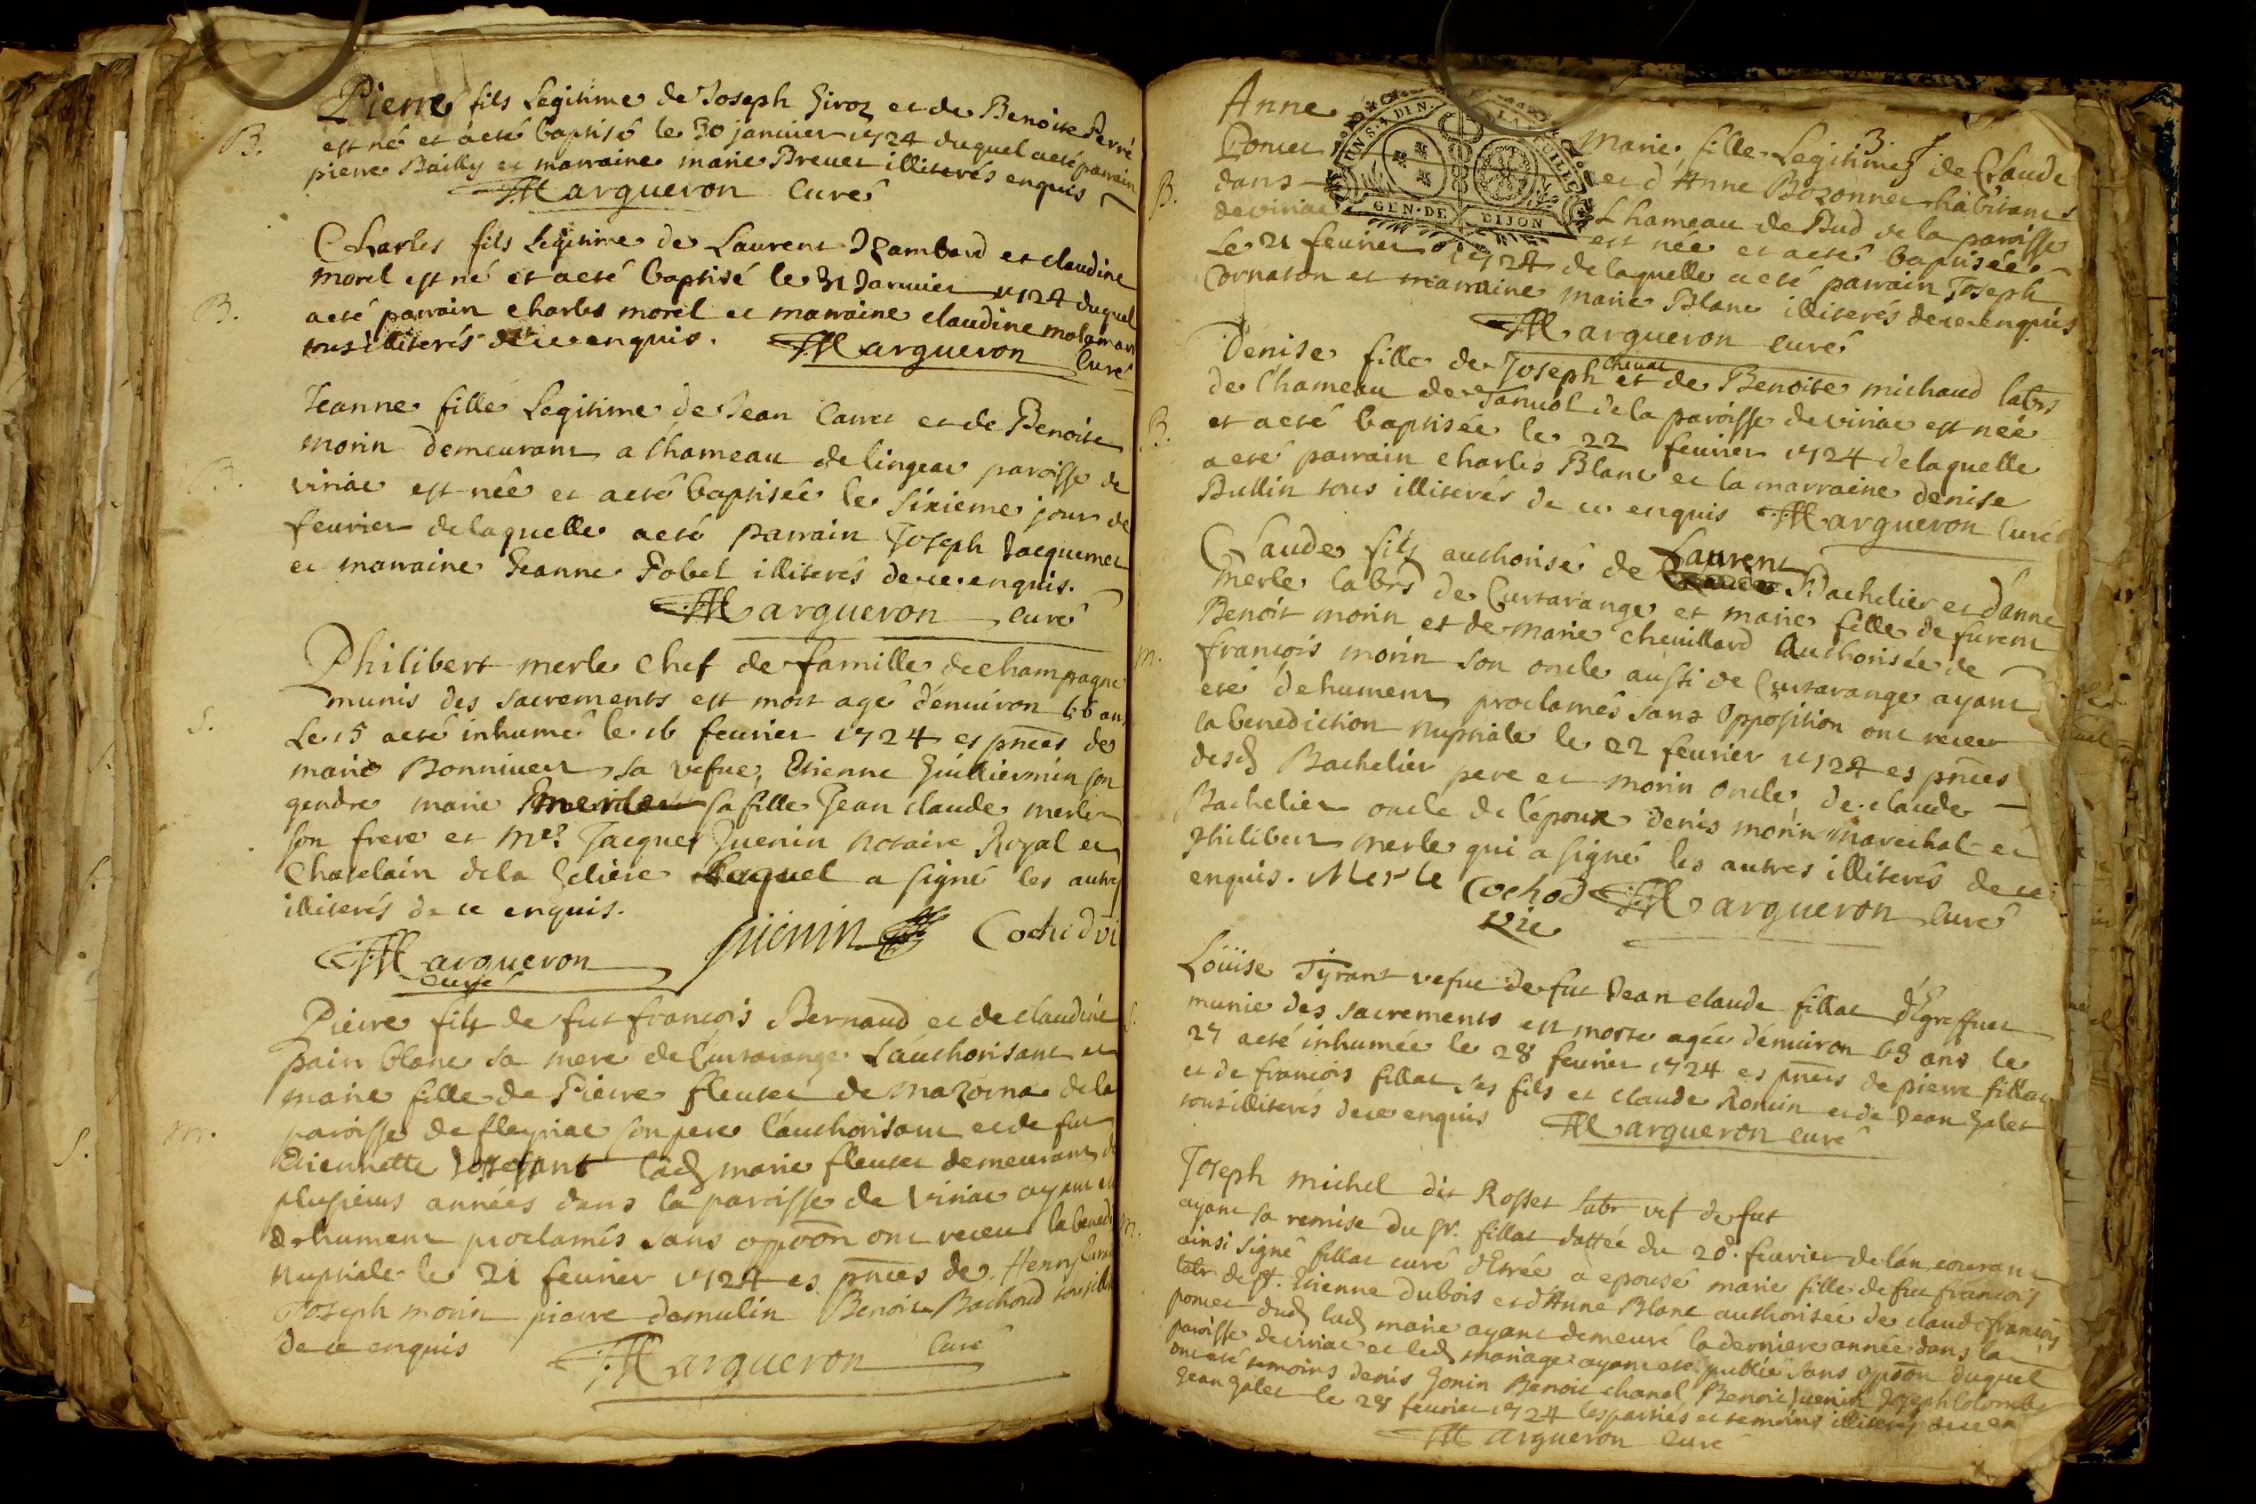 Pierre fils Legitime de Joseph Giroz et de Benoite Perré
B.
est né et a eté baptisé le 30 janvier 1724 duquel a eté parrain
pierre Bailly et marraine marie Brevet illiterés enquis
Margueron Curé
Charles fils Legitime de Laurent Chambard et claudine
morel est né et a eté baptisé le 31 Janvier 1724 duquel
B.
a eté parrain charles morel et marraine claudine
tous illiterés de ce enquis. Margueron Curé
Jeanne fille Legitime de Jean Carret et de Benoite
morin demeurant a l'hameau de lingeat paroisse de
B.
viriat est née et a eté baptisée le sixieme jour de
fevrier de laquelle a eté parrain Joseph Jacquemet
et marraine Jeanne Pobel illiterés de ce enquis.
Margueron curé
Philibert merle chef de famille de champagne
munis des sacrements est mort agé d'environ 66 ans
S.
Le 15 a eté inhumé le 16 fevrier 1724 es pnces de
marie Bonnivert sa vefue, Etienne Guilliermin son
gendre marie merle sa fille Jean claude merle
son frere et Me. Jacques Juenin notaire Royal et
Chatelain de la Geliere lequel a signé les autres
illiterés de ce enquis.
Margueron Juenin Cochod vi
curé
Pierre fils de fut francois Bernaud et de claudine
pain blanc sa mere de Curtarange l'authorisant et
marie fille de Pierre fleutet de mazorna de la
m.
paroisse de fleyriat son pere l'authorisant et de fut
Etiennette lad marie fleutet demeurant
plusieurs années dans la paroisse de viriat ayant
dehument proclamés sans oppoôn ont receu la bened
nuptiale le 21 fevrier 1724 es pnces de Henry
Joseph morin pierre demulin Benoit Bachod
de ce enquis
Margueron Curé
3
Anne Marie fille Legitime de Claude
Poncet et d'Anne Bozonnet habitants
B.
dans L'hameau de Bud de la paroisse
de viriat est née et a eté baptisée
GEN. DE DIJON
Le 21 fevrier 1724 de laquelle a eté parrain Joseph
Cornaton et marraine marie Blanc illiterés de ce enquis
Margueron curé
Denise fille de Joseph chenat et de Benoite michaud labrs
de l'hameau de Tanvol de la paroisse de viriat est née
B.
et a eté baptisée le 22 fevrier 1724 de laquelle
a eté parrain charles Blanc et la marraine denise
Bullin tous illiterés de ce enquis Margueron Curé
Claude fils authorisé de Laurent Bachelier et d'anne
merle labrs de Curtarange et marie fille de furent
Benoit morin et de marie chevillard Authorisée de
m.
francois morin son oncle aussi de Curtarange ayant
eté dehument proclamés sans opposition ont receu
la benediction nuptiale le 22 fevrier 1724 es pnces
desd Bachelier pere et morin oncle, de claude
Bachelier oncle de l'époux denis morin marechal et
philibert merle qui a signé les autres illiterés de ce
enquis. Merle Cochod Margueron curé
vic
Loüise Tyrant vefue de fut Jean claude fillat d'Egreffuet
S.
munie des sacrements est morte agée d'environ 68 ans le
27 a eté inhumée le 28 fevrier 1724 es pnces de pierre fillat
et de francois fillat ses fils et claude Romin et de Jean Galet
tous illiterés de ce enquis Margueron curé
Joseph michel dit Rosset labr vef de fut
m.
ayant sa remise du Sr. fillat dattée du 20d. fevrier de l'an courant
ainsi signé fillat curé d'Etrée a epousé marie fille de fut francois
labr de St. Etienne dubois et d'Anne Blanc authorisée de claude francois
poncet dud lad marie ayant demeuré la derniere année dans la
paroisse de viriat et led mariage ayant eté publié sans opoôn duquel
ont eté temoins denis Gonin Benoit chanel Benoit Juenin Joseph Colomb
Jean Galet le 28 fevrier 1724 les parties et temoins illiterés de ce en
Margueron curé